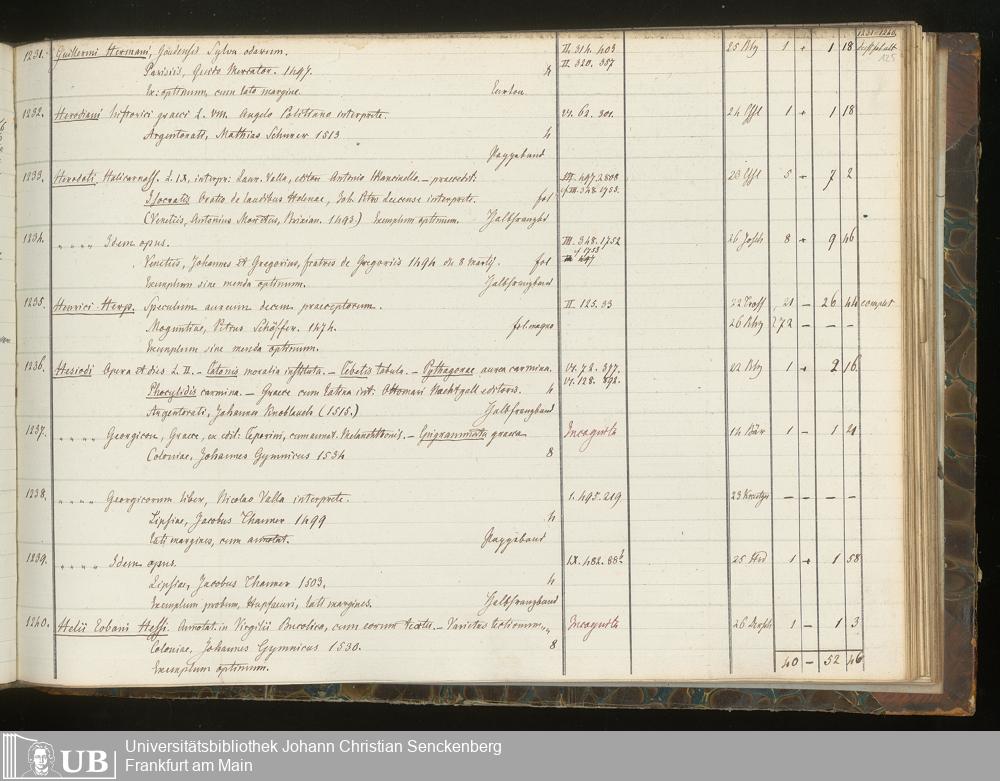 1231-1240
125
1231. Guillermi Hermani, Goudensis Sylva odarum. II. 314. 403 25 Bby 1 + 1 18
Parisiis, Guido Mercator. 1497. 4 II. 320. 357
Ex: optimum, cum lato margine. Carton
1232. Herodiani historici graeci L. VIII. Angelo Politiano interprete. VI. 62. 301. 1 + 1 18
Argentorati, Mathias Schurer 1513 4
Pappeband
1233. Herodoti, Halicarnass. L. IX, interpr: Laur. Valla, Antonio Mancinello. – praecedit: III. 497. 2808 5 + 7 2
Isocratis Oratio de laudibus Helenae, Joh. Petro Lucense interprete. fol cf III. 348. 1753.
(Venetiis, Antonius Moretus, Brixian. 1493.) Exemplum optimum. Halbfranzbd
1234. " " " " Idem opus. III. 348. 1752 26 Josch 8 + 9 46
Venetiis, Johannes et Gregorius, fratres de Gregoriis 1494 de 8 Martij. fol cf 1753
Exemplum sine menda optimum. Halbfranzband
1235. Henrici Herp. Speculum aureum decem praeceptorum. II. 125. 33 21 – 26 44 complet
Moguntiae, Petrus Schöffer. 1474. fol. magno 72 – – –
Exemplum sine menda optimum.
1236. Hesiodi Opera et dies L. II. – Catonis moralia instituta. – Cebetis tabula. – Pythagorae aurea carmina. VI. 72. 377. 22 Bby 1 + 2 16
Phocylidis carmina. – Graece cum latina int: Ottomari Nachtgall editoris. 4 VI. 128. 892.
Argentorati, Johannes Knoblauch (1515.) Halbfranzband
1237. " " " " Georgicon, Graece, ex edit. Ceporini, cum annot. Melanchthonis. – Epigrammata graeca Incognita 14 Bär 1 – 1 21
Coloniae, Johannes Gymnicus 1534 8
1238. " " " " Georgicorum liber, Nicolao Valla interprete. I. 495. 219 – – – –
Lipsiae, Jacobus Thanner 1499 4
lati margines, cum annotat. Pappeband
1239. " " " " Idem opus. IX. 482. 88b 1 + 1 58
Lipsiae, Jacobus Thanner 1503. 4
Exemplum probum, lati margines. Halbfranzband
1240. Helii Eobani Hessi. Annotat. in Virgilii Bucolica, cum eorum – Varietas lectionum „ Incognita 1 – 1 3
Coloniae, Johannes Gymnicus 1530. 8
Exemplum optimum. 40 – 52 46
UB
Universitätsbibliothek Johann Christian Senckenberg
Frankfurt am Main